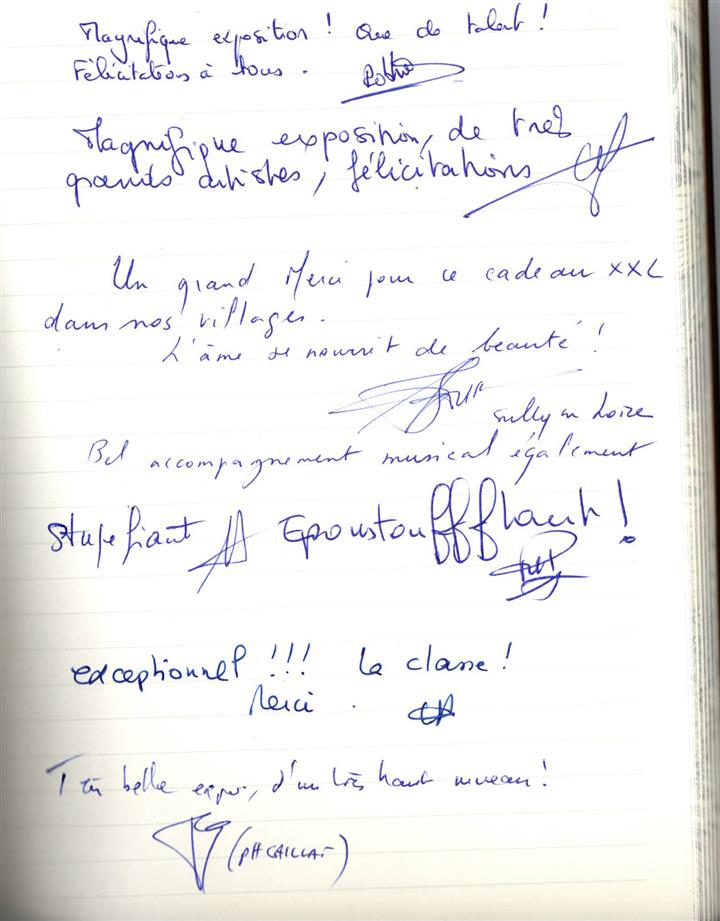 Magnifique exposition ! Que de talent !
Félicitations à tous.
Magnifique exposition, de très
grands artistes, félicitations
Un grand Merci pour ce cadeau XXL
dans nos villages.
L'âme se nourrit de beauté !
Sully sur Loire
Bel accompagnement musical également
Stupefiant Epoustouffflant !
exceptionnel !!! la classe !
Merci .
Très belle expo, d'un très haut niveau !
(PH CAILLAT)